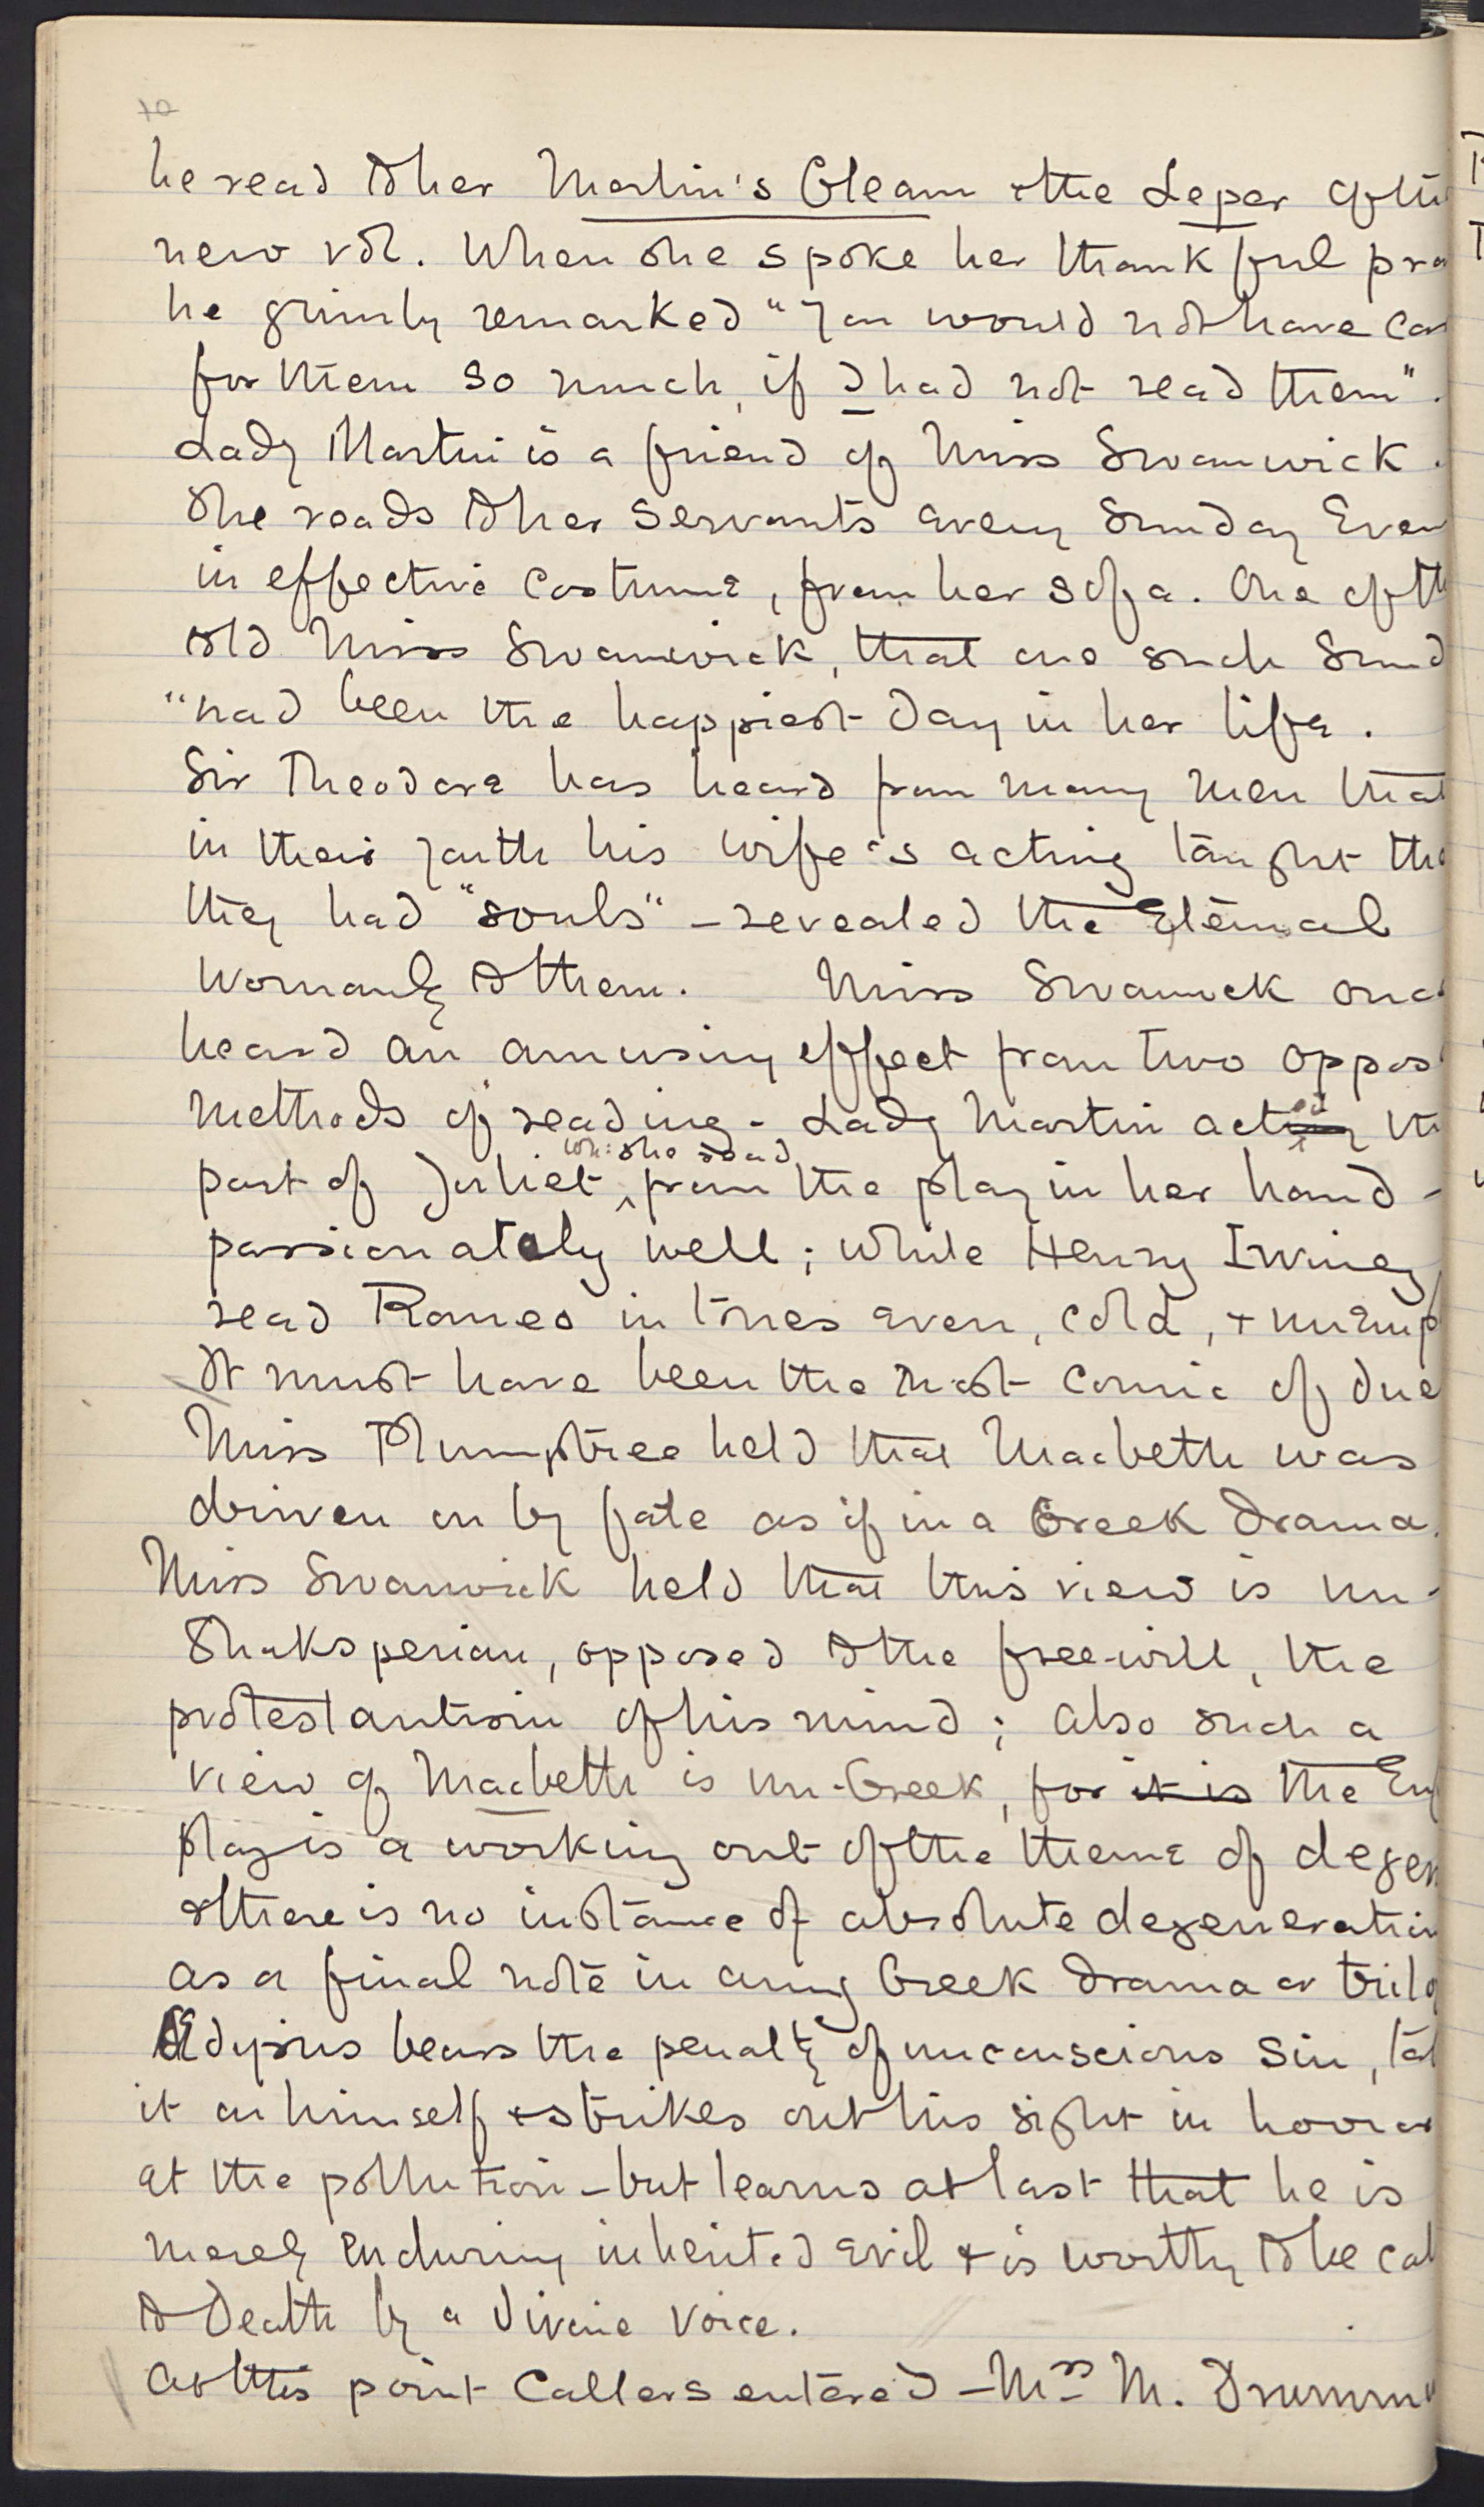 he read to her Merlin's Gleam & the Leper of the
new vol. When she spoke her thankful pra
he grimly remarked "You would not have car
for them so much, if I had not read them".
Lady Martin is a friend of Miss Swanwick.
She reads to her servants every Sunday Even
in effective costume, from her sofa. One of th
told Miss Swanwick, that one such Sund
"had been the happiest day in her life.
Sir Theodore has heard from many men that
in their youth his wife's acting taught the
they had "souls" - revealed the Eternal
Womanly to them. Miss Swanwick once
heard an amusing effect from two oppos
methods of reading - Lady Martin acted the
part of Juliet, wh: she read from the play in her hand -
passionately well; while Henry Irving
read Romeo in tones even, cold, & unemp
It must have been the most comic of due
Miss Plumptree held that Macbeth was
driven on by fate as if in a Greek drama.
Miss Swanwick held that this view is un-
Shaksperian, opposed to the free-will, the
protestantism of his mind; also such a
view of Macbeth is un-Greek, for it is the Eng
play is a working out of the theme of degen
& there is no instance of absolute degeneration
as a final note in any Greek drama or trilo
Œdipus bears the penalty of unconscious sin, tak
it on himself & strikes out his sight in horror
at the pollution - but learns at last that he is
merely enduring inherited evil & is worthy to be cal
to Death by a Divine Voice.
At this point Callers entered - Mrs M. Drummo